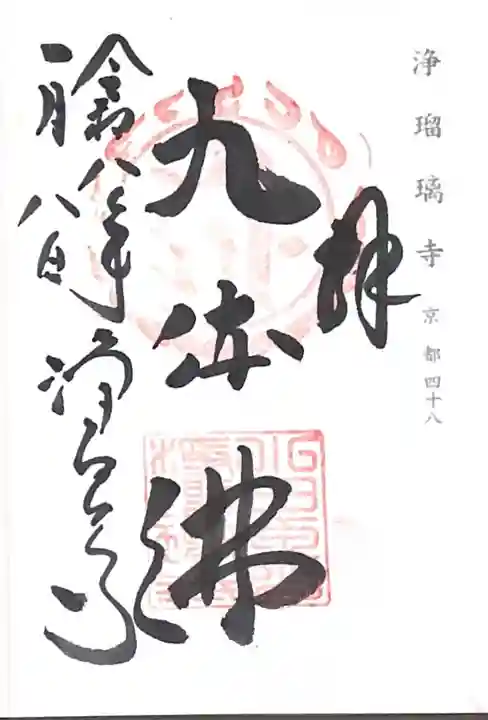 浄瑠璃寺 京都四十八
拝
九体佛
八年
一月八日
浄るり寺